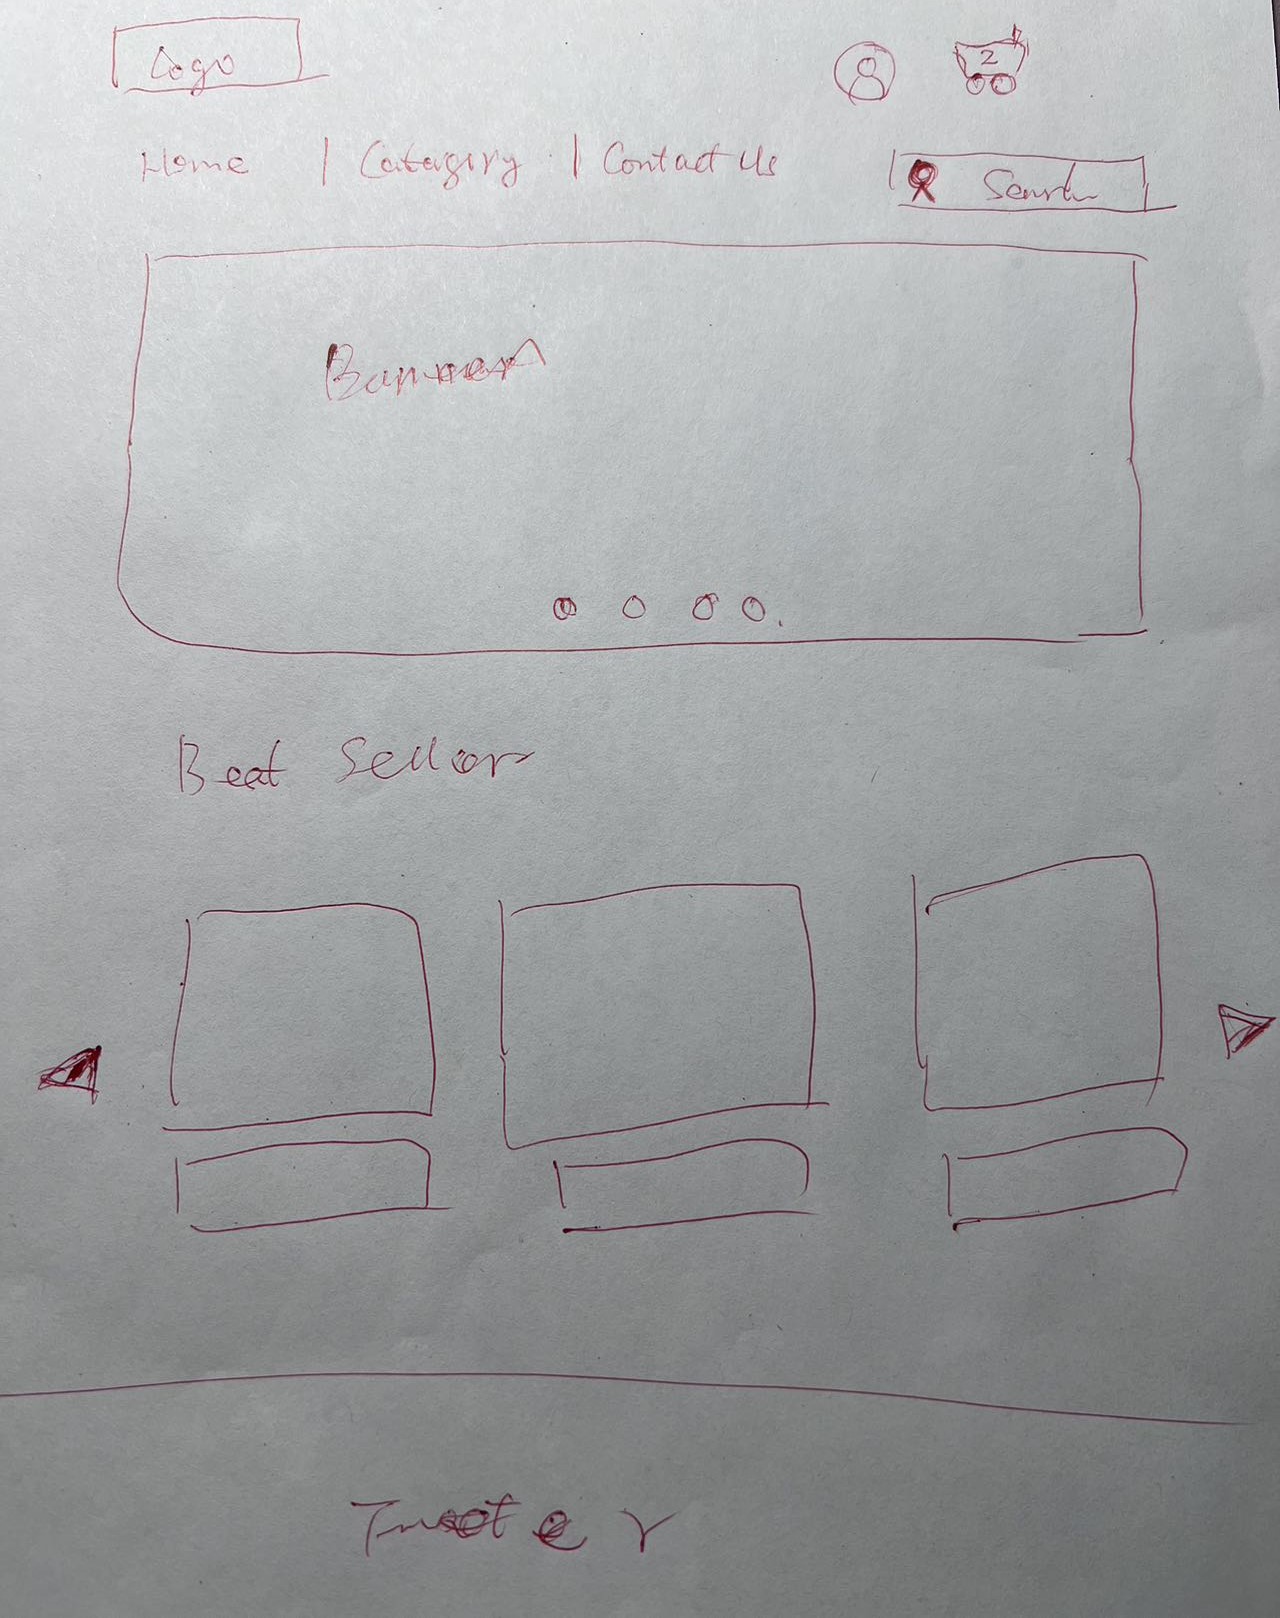 Logo
2
Home | Catagory | Contact Us
Search
Banner
Best Seller